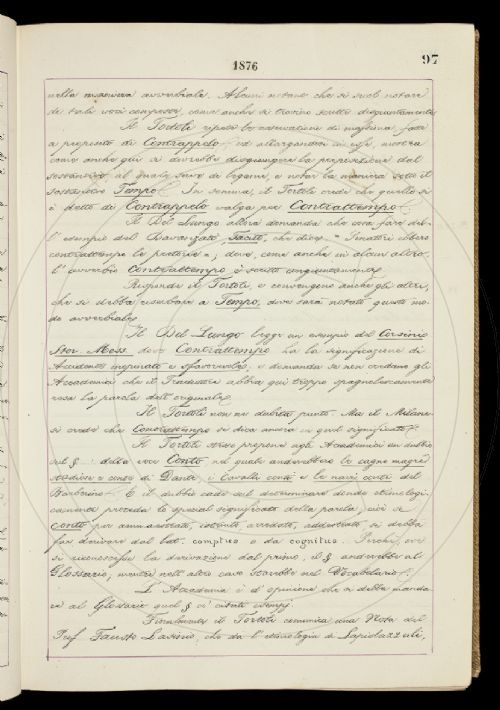 1876
97
nella maniera avverbiale. Alcuni notano che si suol notare
di tali voci composte, come anche si trovino scritte disgiuntamente.
Il Tortoli ripete le osservazioni di massima fatte
a proposito di Contrappelo ed allargandosi in esse, mostra
come anche qui si dovrebbe disgiungere la preposizione dal
sostantivo, al quale serve di legame, e notar la maniera sotto il
sostantivo Tempo. In somma, il Tortoli crede che quello si
è detto di Contrappelo valga per Contrattempo.
Il Del Lungo allora domanda che cosa fare del-
l'esempio del Davanzati, Tacito, che dice
contrattempo le preterie; dove, come anche in alcun altro,
l'avverbio Contrattempo è scritto congiuntamente.
Risponde il Tortoli, e convengono anche gli altri,
che si debba riserbare a Tempo, dove sarà notato questo mo-
do avverbiale.
Il Del Lungo legge un esempio del Corsini,
Stor. Mess. dove Contrattempo ha la significazione di
Accidente inopinato e sfavorevole, e domanda se non credano gli
Accademici che il Traduttore abbia qui troppo spagnolescamente
resa la parola dell'originale.
Il Tortoli non ne dubita punto. Ma il Milane-
si crede che Contrattempo si dica ancora in quel significato.
Il Tortoli stesso propone agli Accademici un dubbio
sul § della voce Conto nel quale andrebbero le cagne magre
studiose e conte di Dante, i Cavalli conti e le navi conte del
Barberino. E il dubbio cade sul determinare donde etimologi-
camente proceda lo special significato della parola, cioè se
conto per ammaestrato, istruito, arredato, addestrato si debba
far derivare dal lat. comptus o da cognitus. Perché, ove
si riconoscesse la derivazione dal primo, il § andrebbe al
Glossario, mentre nell'altro caso starebbe nel Vocabolario.
L'Accademia è d'opinione che si debba manda-
re al Glossario quel § coi citati esempi.
Finalmente il Tortoli comunica una Nota del
Prof. Fausto Lasinio, che dà l'etimologia di Lapislazzuli,